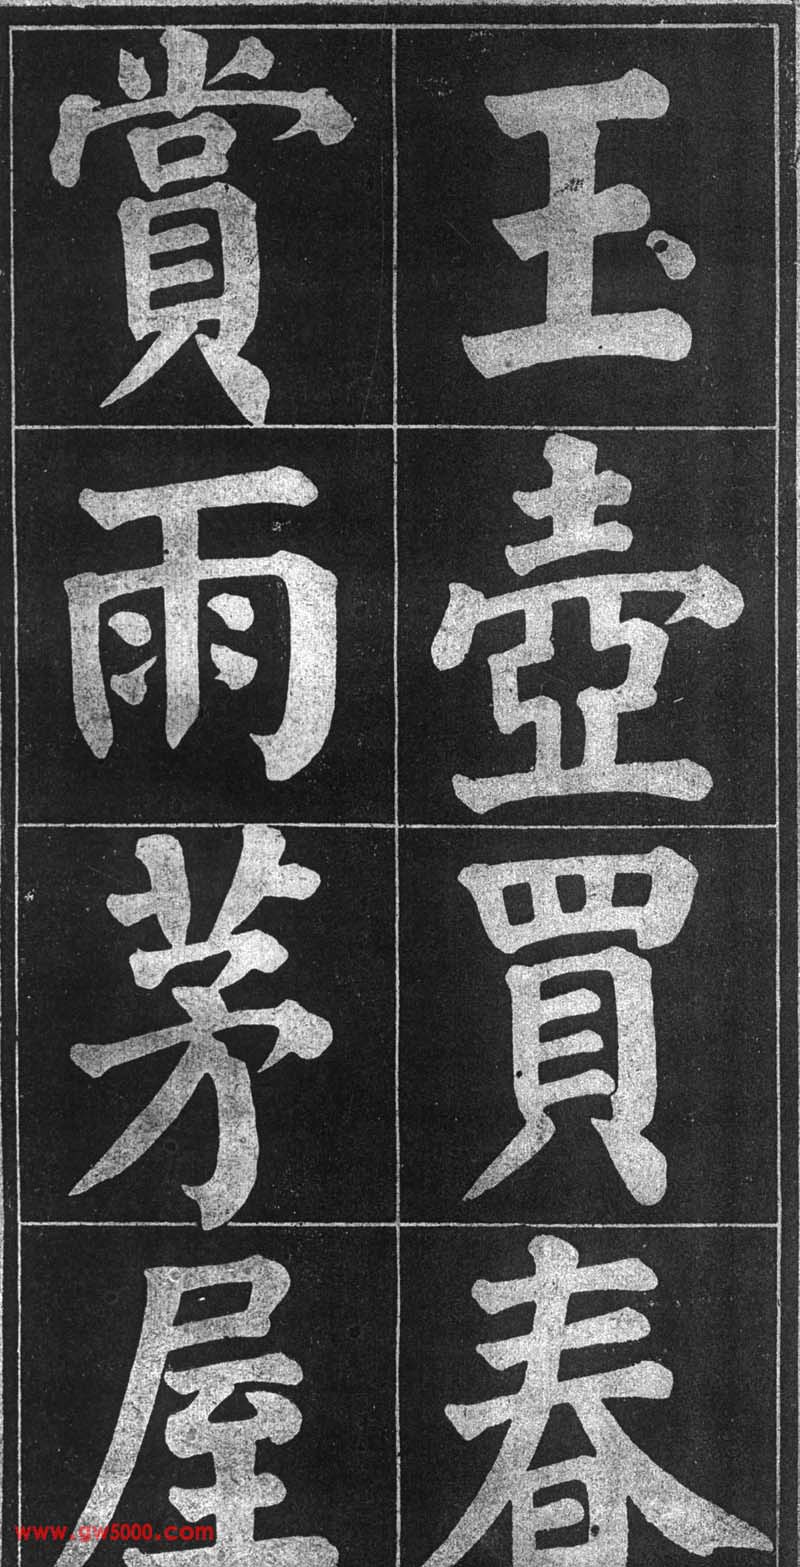 玉壺買春
賞雨茅屋
www.gw5000.com